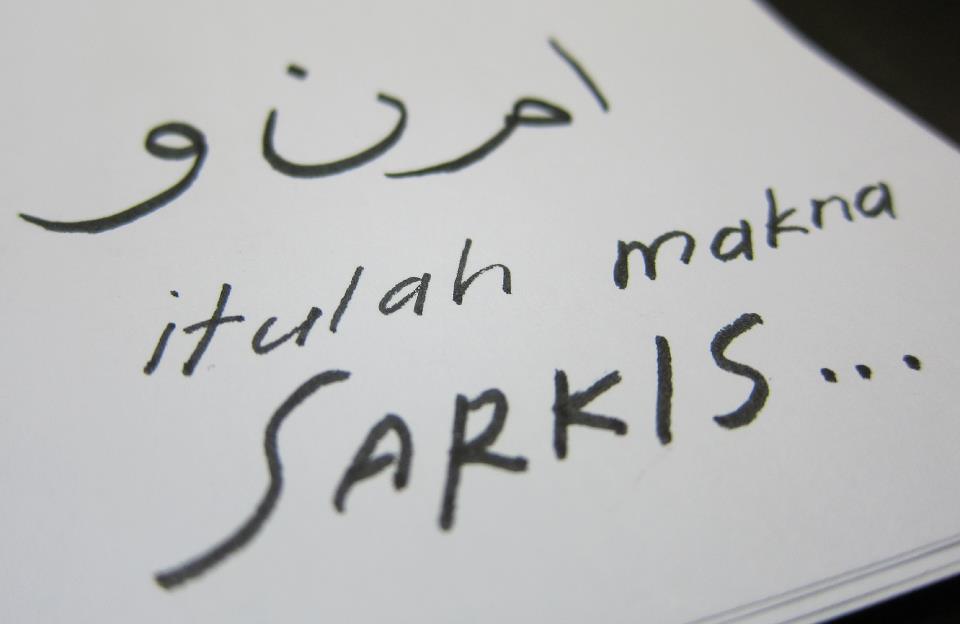 امرن و
itulah makna
SARKIS...